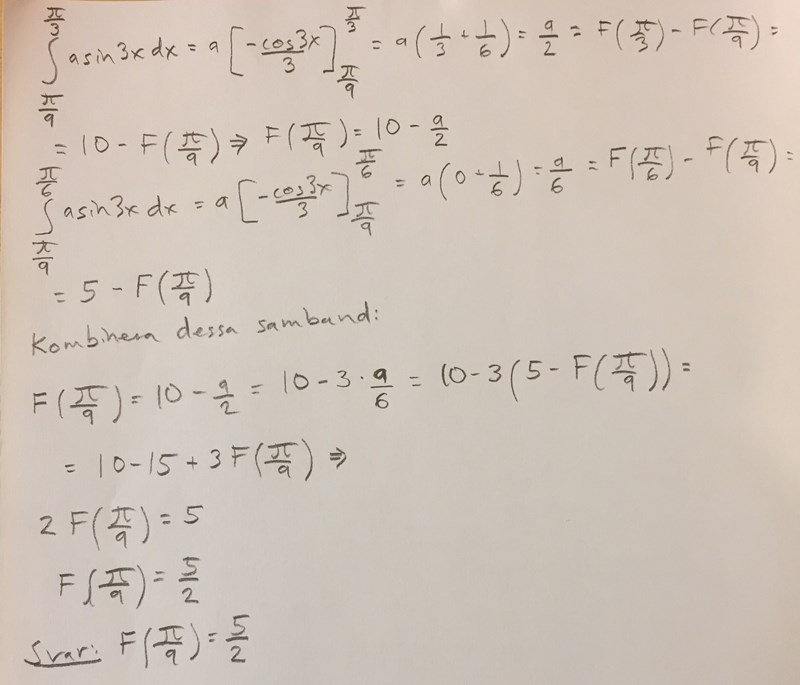 ∫_{π/9}^{π/3} a sin3x dx = a [-cos3x/3]_{π/9}^{π/3} = a(1/3 + 1/6) = a/2 = F(π/3) - F(π/9) =
= 10 - F(π/9) ⇒ F(π/9) = 10 - a/2
∫_{π/9}^{π/6} a sin3x dx = a [-cos3x/3]_{π/9}^{π/6} = a(0 + 1/6) = a/6 = F(π/6) - F(π/9) =
= 5 - F(π/9)
Kombinera dessa samband:
F(π/9) = 10 - a/2 = 10 - 3 · a/6 = 10 - 3(5 - F(π/9)) =
= 10 - 15 + 3F(π/9) ⇒
2 F(π/9) = 5
F(π/9) = 5/2
Svar: F(π/9) = 5/2